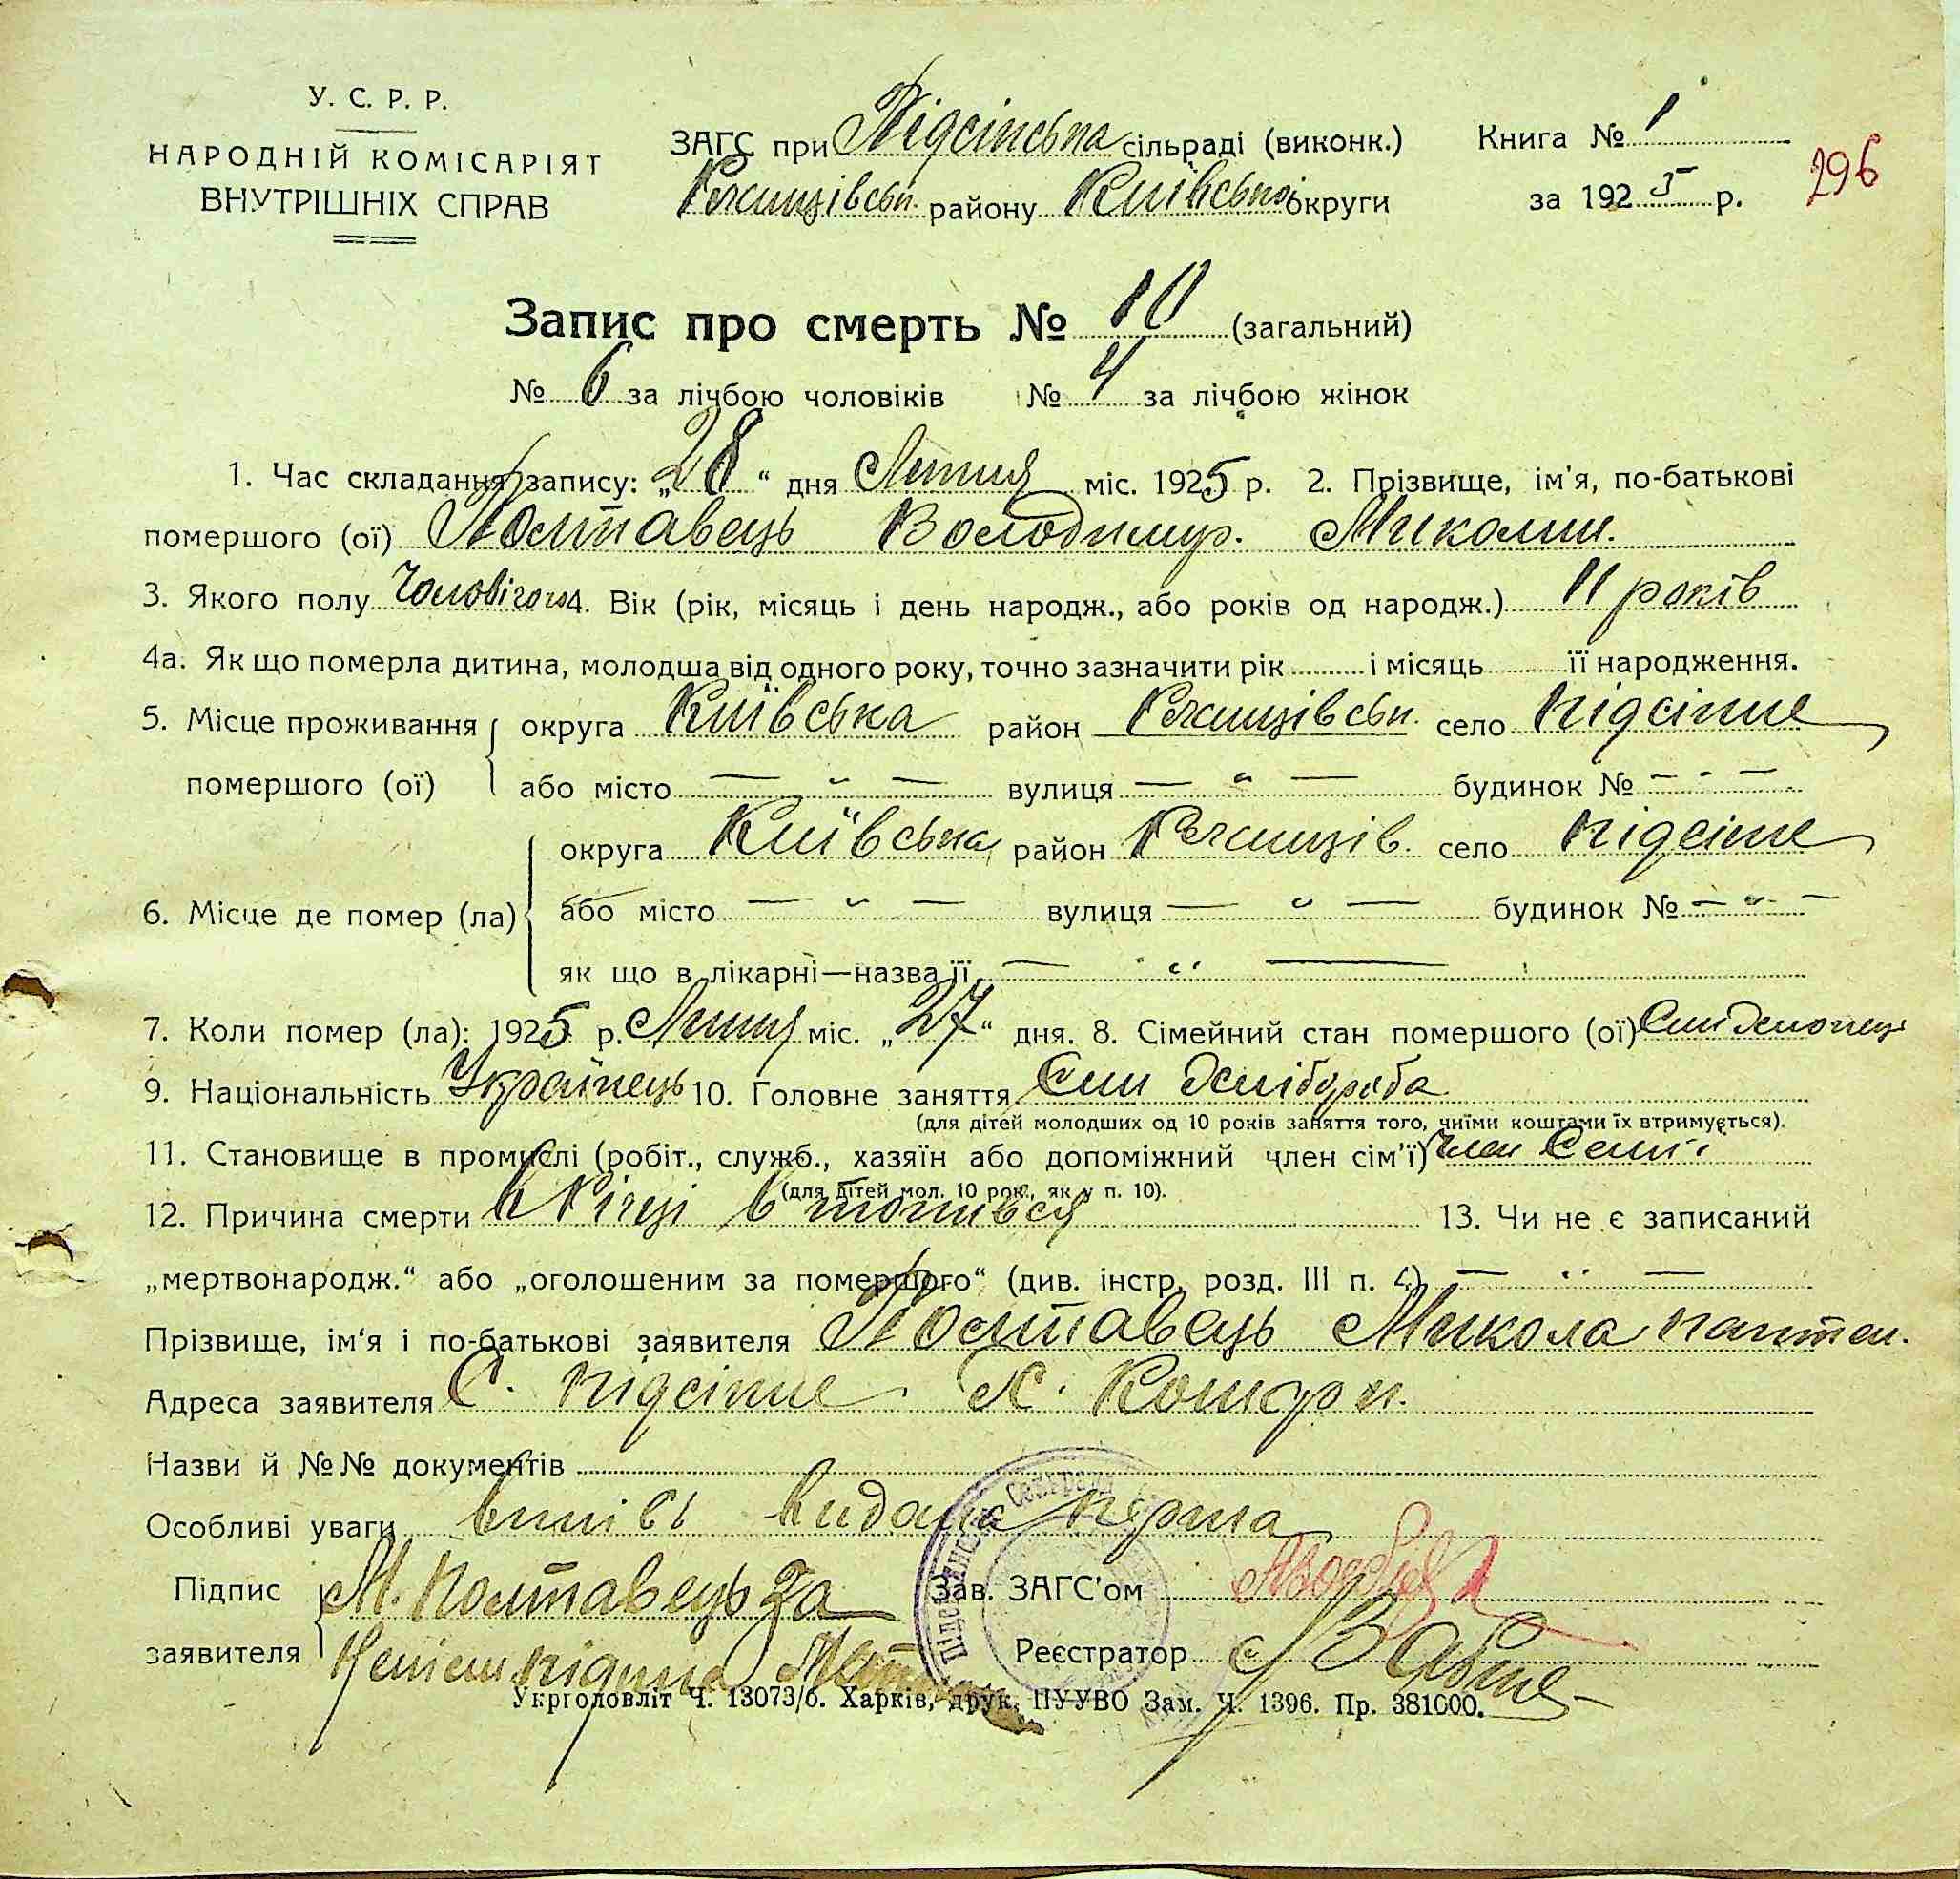 У. С. Р. Р.
НАРОДНІЙ КОМІСАРІЯТ
ВНУТРІШНІХ СПРАВ
ЗАГС при Підсінська сільраді (виконк.)
Ржищівськ. району Київської округи
Книга № 1
за 1925 р.
296
Запис про смерть № 10 (загальний)
№ 6 за лічбою чоловіків № 4 за лічбою жінок
1. Час складання запису: „28“ дня Липня міс. 1925 р. 2. Прізвище, ім'я, по-батькові
помершого (ої) Полтавець Володимир. Миколи.
3. Якого полу Чоловічого 4. Вік (рік, місяць і день народж., або років од народж.) 11 років
4а. Як що померла дитина, молодша від одного року, точно зазначити рік і місяць її народження.
5. Місце проживання округа Київська район Ржищівськ. село Підсінне
помершого (ої) або місто — " — вулиця — " — будинок № — " —
округа Київська район Ржищів. село Підсінне
6. Місце де помер (ла) або місто — " — вулиця — " — будинок № — " —
як що в лікарні—назва її — " —
7. Коли помер (ла): 1925 р. Липня міс. „27“ дня. 8. Сімейний стан помершого (ої) Син
9. Національність Українець 10. Головне заняття Син Хлібороба
(для дітей молодших од 10 років заняття того, чиїми коштами їх втримується).
11. Становище в промислі (робіт., служб., хазяїн або допоміжний член сім'ї) член Семії
(для дітей мол. 10 рок., як у п. 10).
12. Причина смерти в Річці втопився 13. Чи не є записаний
„мертвонародж.“ або „оголошеним за помершого“ (див. інстр. розд. III п. 4) — " —
Прізвище, ім'я і по-батькові заявителя Полтавець Микола пантел.
Адреса заявителя С. Підсінне Х.
Назви й №№ документів
Особливі уваги випісь видана перша
Підпис М. Полтавець За Зав. ЗАГС'ом
заявителя Реєстратор
Укрголовліт Ч. 13073/б. Харків, друк. ПУУВО Зам. Ч. 1396. Пр. 381000.